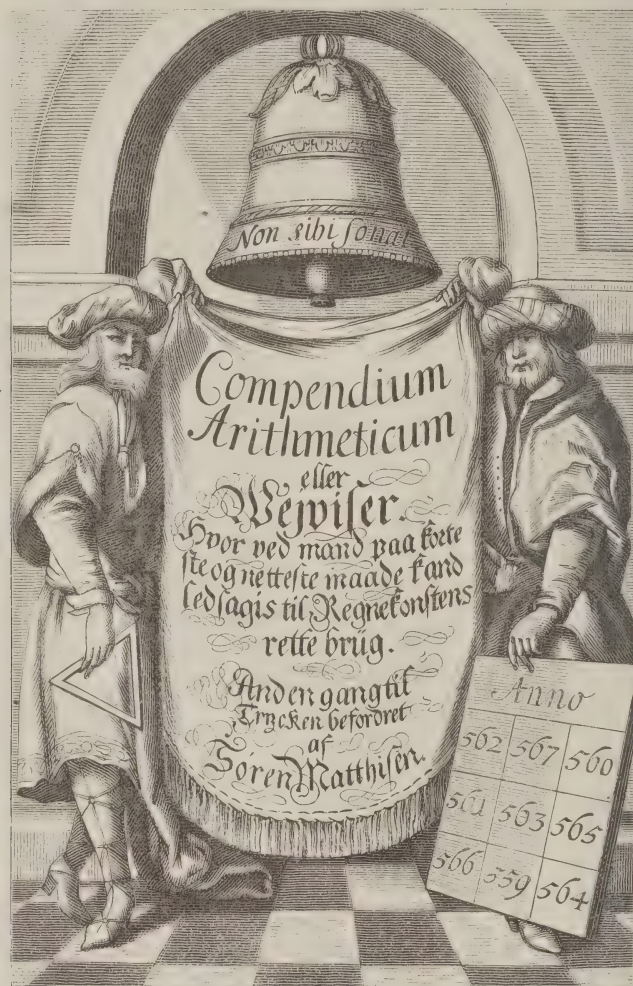 Non sibi ſonat
Compendium
Arithmeticum
eller
Wejviſer.
Hvor ved mand paa korte
ſte og netteſte maade kand
ledſagis til Regnekonſtens
rette brüg.
Anden gang til
Trycken befordret
af
Sören Matthiſen.
Anno
562 567 560
561 563 565
566 559 564